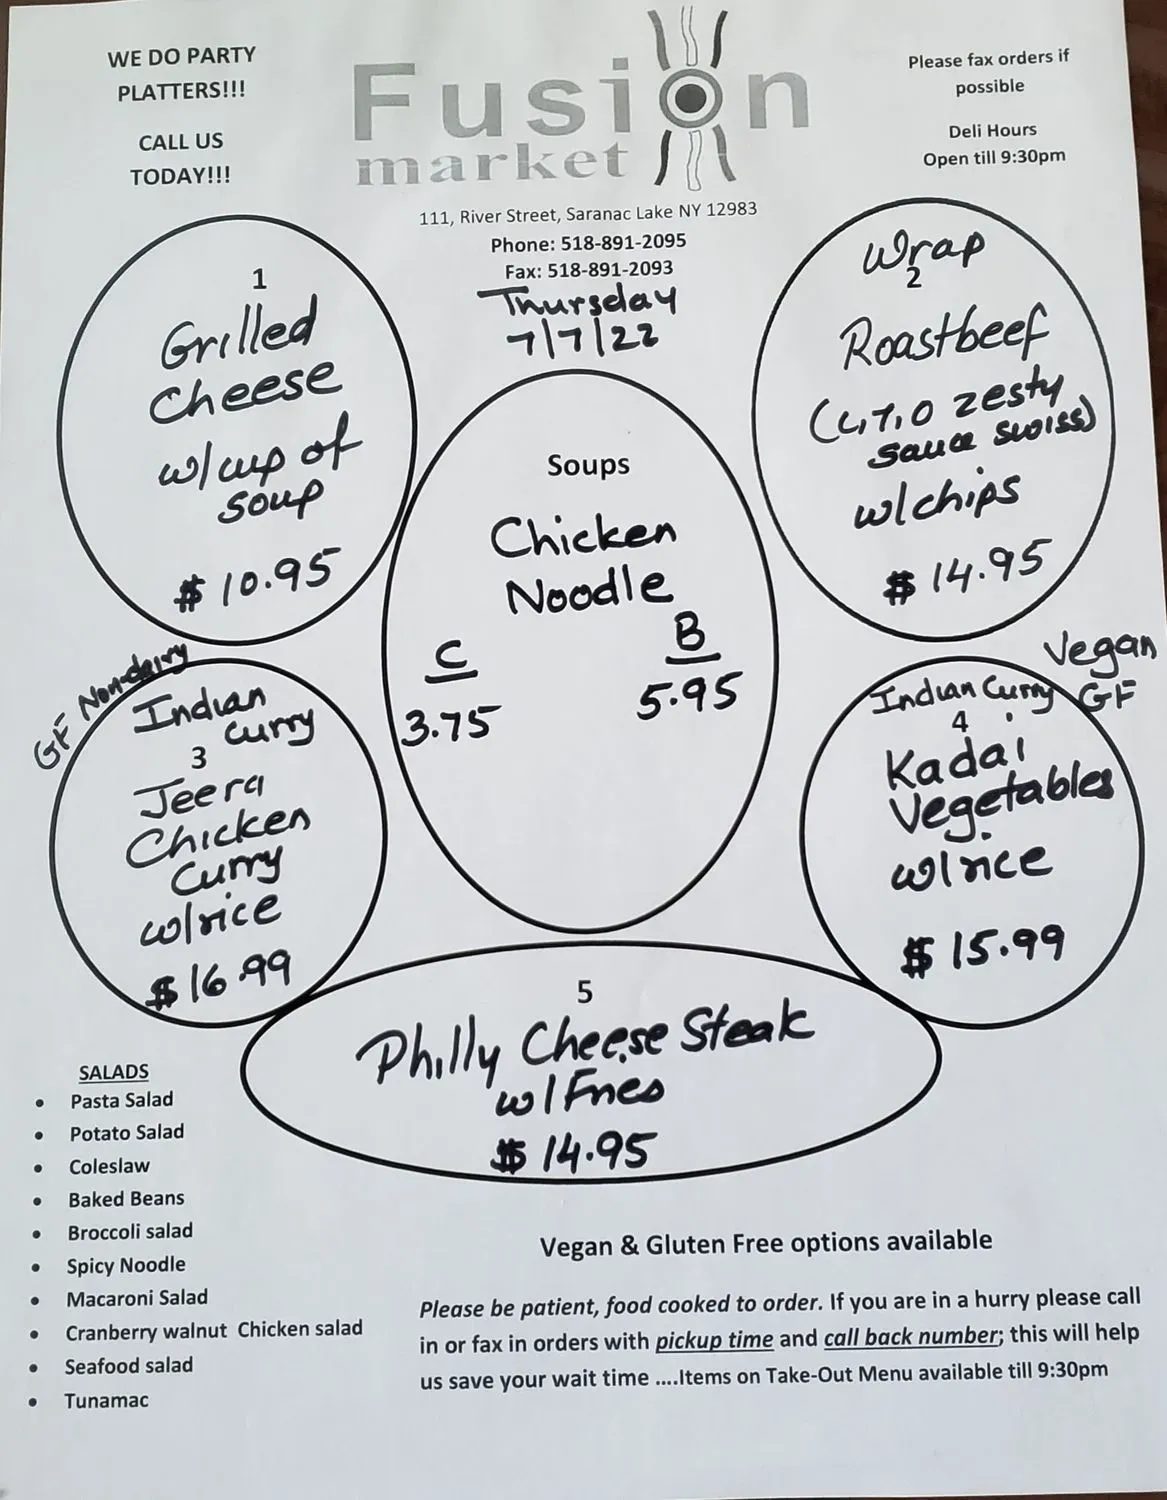 WE DO PARTY
PLATTERS!!!
CALL US
TODAY!!!
Fusion
market
Please fax orders if
possible
Deli Hours
Open till 9:30pm
111, River Street, Saranac Lake NY 12983
Phone: 518-891-2095
Fax: 518-891-2093
Thursday
7/7/22
1
Grilled
Cheese
w/cup of
soup
$ 10.95
Wrap
2
Roastbeef
(L,T,O zesty
sauce swiss)
w/chips
$ 14.95
Soups
Chicken
Noodle
C
3.75
B
5.95
GF Non-dairy
Indian
Curry
3
Jeera
Chicken
Curry
w/rice
$ 16.99
Vegan
GF
Indian Curry
4
Kadai
Vegetables
w/rice
$ 15.99
5
Philly Cheese Steak
w/Fries
$ 14.95
SALADS
• Pasta Salad
• Potato Salad
• Coleslaw
• Baked Beans
• Broccoli salad
• Spicy Noodle
• Macaroni Salad
• Cranberry walnut Chicken salad
• Seafood salad
• Tunamac
Vegan & Gluten Free options available
Please be patient, food cooked to order. If you are in a hurry please call
in or fax in orders with pickup time and call back number; this will help
us save your wait time ....Items on Take-Out Menu available till 9:30pm